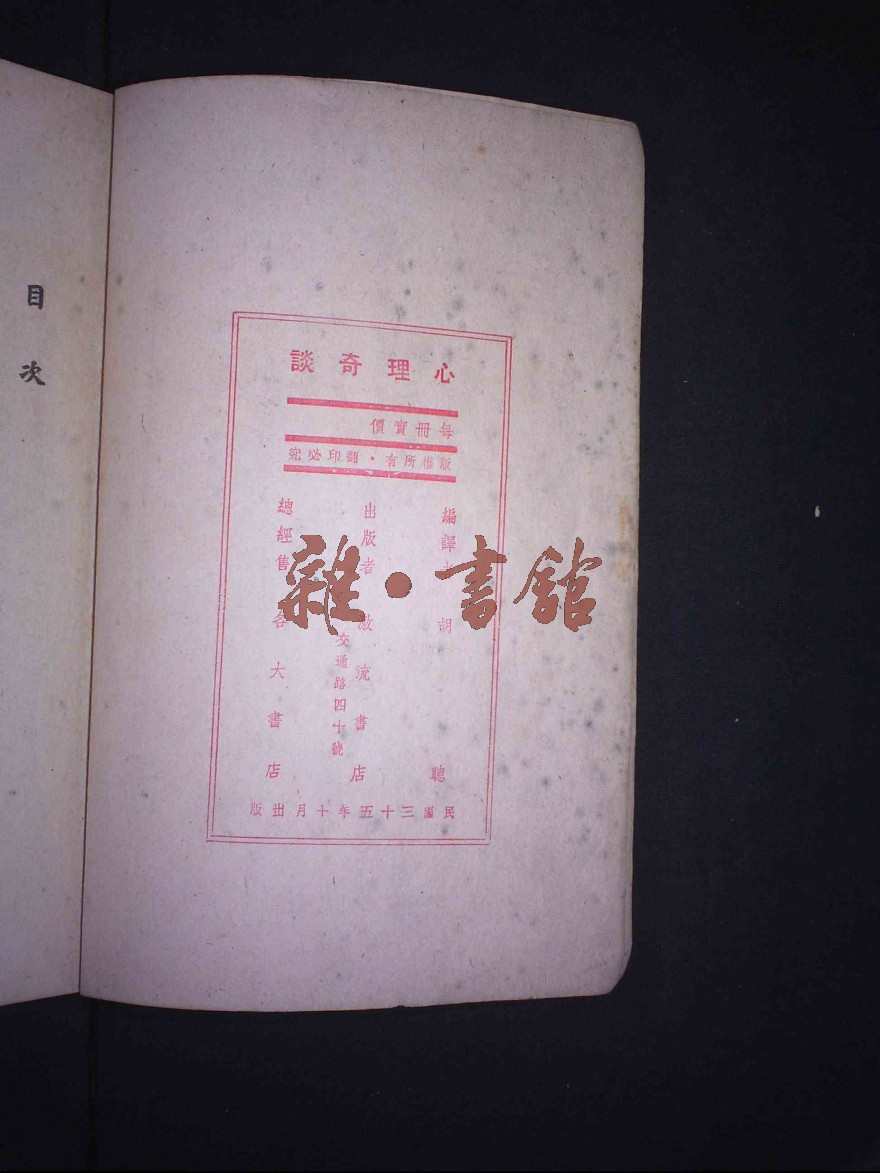 心理奇談
每冊實價
版權所有・翻印必究
編譯者 胡聰
出版者 激流書店
交通路四十號
總經售 各大書店
民國三十五年十月出版
目次
雜・書館